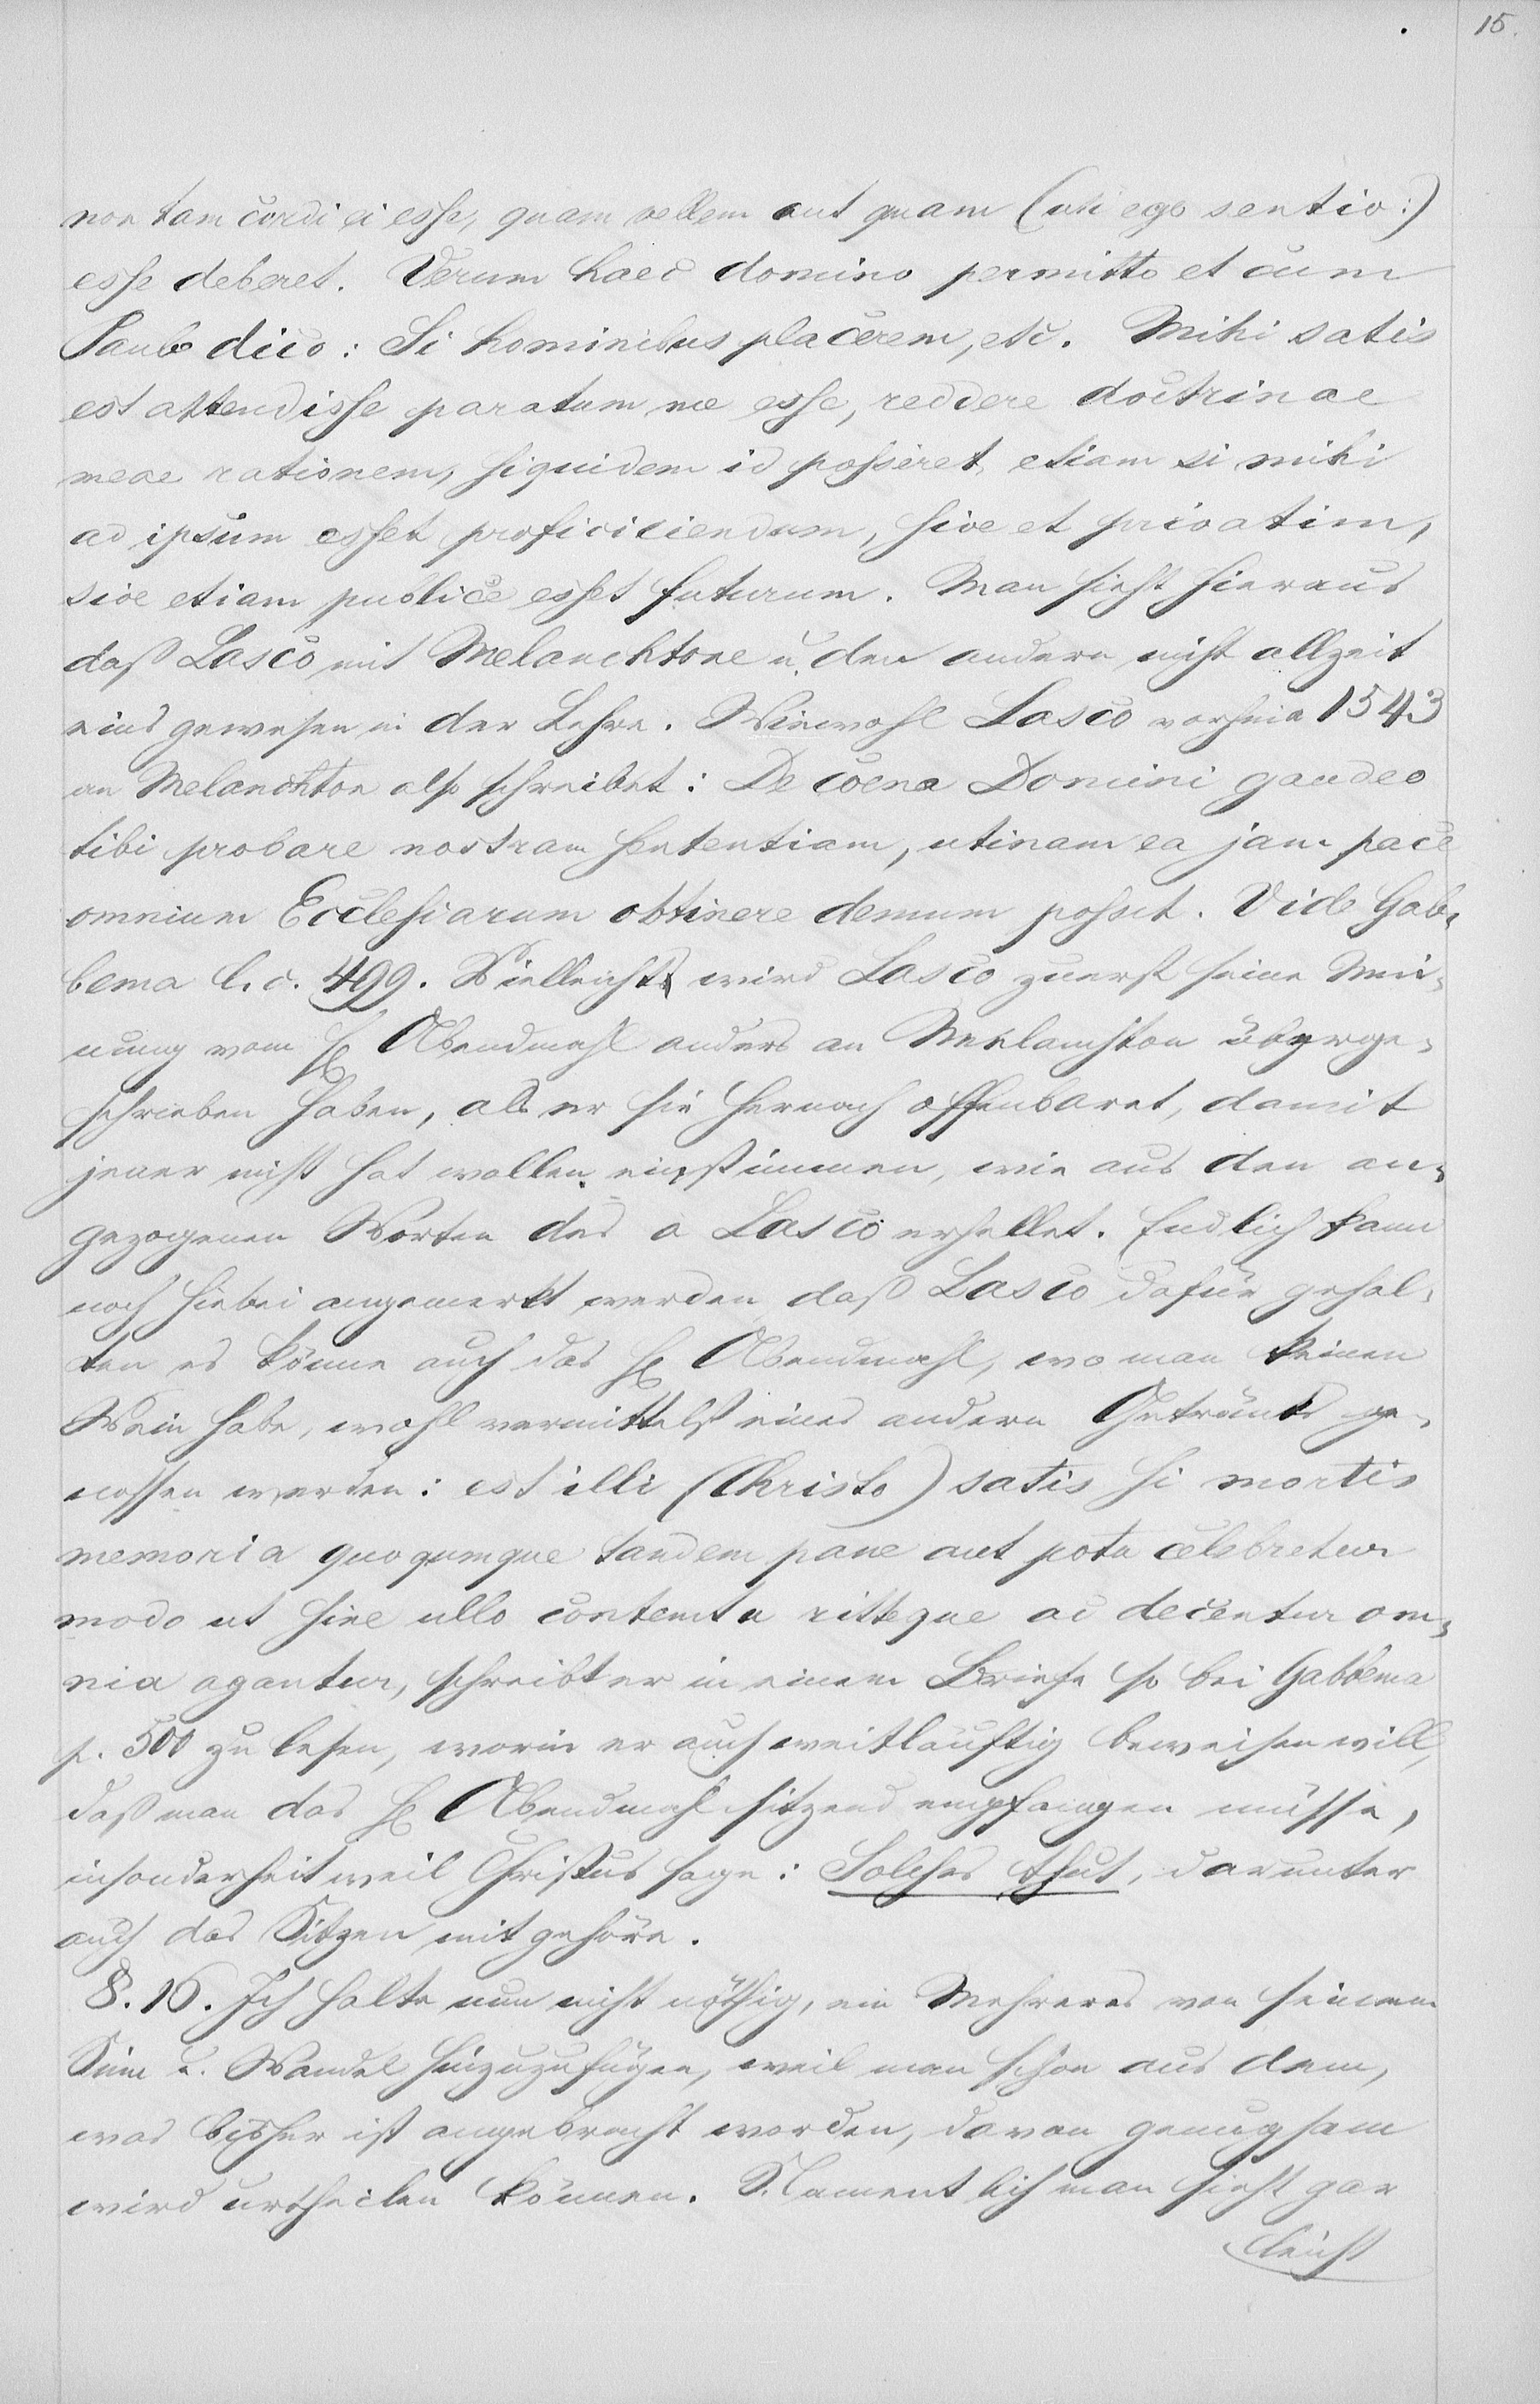 15.
non tam cordi ei esse, quam vellem aut quam (uti ego sentio:)
esse deberet. Verum haec domino permitto et cum
Paulo dico: Si hominibus placerem, etc. Mihi satis
est attendisse paratum me esse, reddere doctrinae
meae rationem, siquidem id posceret, etiam si mihi
ad ipsum esset proficiciendum, sive et privatim,
sive etiam publice esset futurum. Man sieht hieraus
daß Lasco mit Melanchtone u. den andern nicht allzeit
eins gewesen in der Lehre. Wiewohl Lasco vorhein 1543
an Melanchton also schreibet: De coena Domini gaudeo
tibi probare nostram sententiam, utinam ea jam pace
omnium Ecclesiarum obtinere demum posset. Vide Gab-
bema l. c. 499. Vielleicht wird Lasco zuerst seine Mei-
nung vom H. Abendmahl anders an Melanchton überge-
schrieben haben, als er sie hernach offenbaret, damit
jener nicht hat wollen einstimmen, wie aus den an-
gezogenen Worten des a Lasco erhellet. Endlich kann
noch hiebei angemerkt werden, daß Lasco dafür gehal-
ten es könne auch das H. Abendmahl, wo man keinen
Wein habe, wohl vermittelst eines andern Getränks ge-
nossen werden: est illi (Christo) satis si mortis
memoria quoqumque tandem pane aut potu celebretur
modo ut sine ullo contemtu ritteque ac decentur om-
nia agantur, schreibt er in einem Briefe so bei Gabbema
p. 500 zu lesen, worin er auch weitläuftig beweisen will,
daß man das H. Abendmahl sitzend empfangen müsse,
insonderheit weil Christus sage: Solches thut, darunter
auch das Sitzen mit gehöre.
§. 16. Ich halte nun nicht nöthig, ein Mehreres von seinem
Sinn u. Wandel hinzuzufügen, weil man schon aus dem,
was bisher ist angebracht worden, davon genugsam
wird urtheilen können. Namentlich man sieht gar
leicht